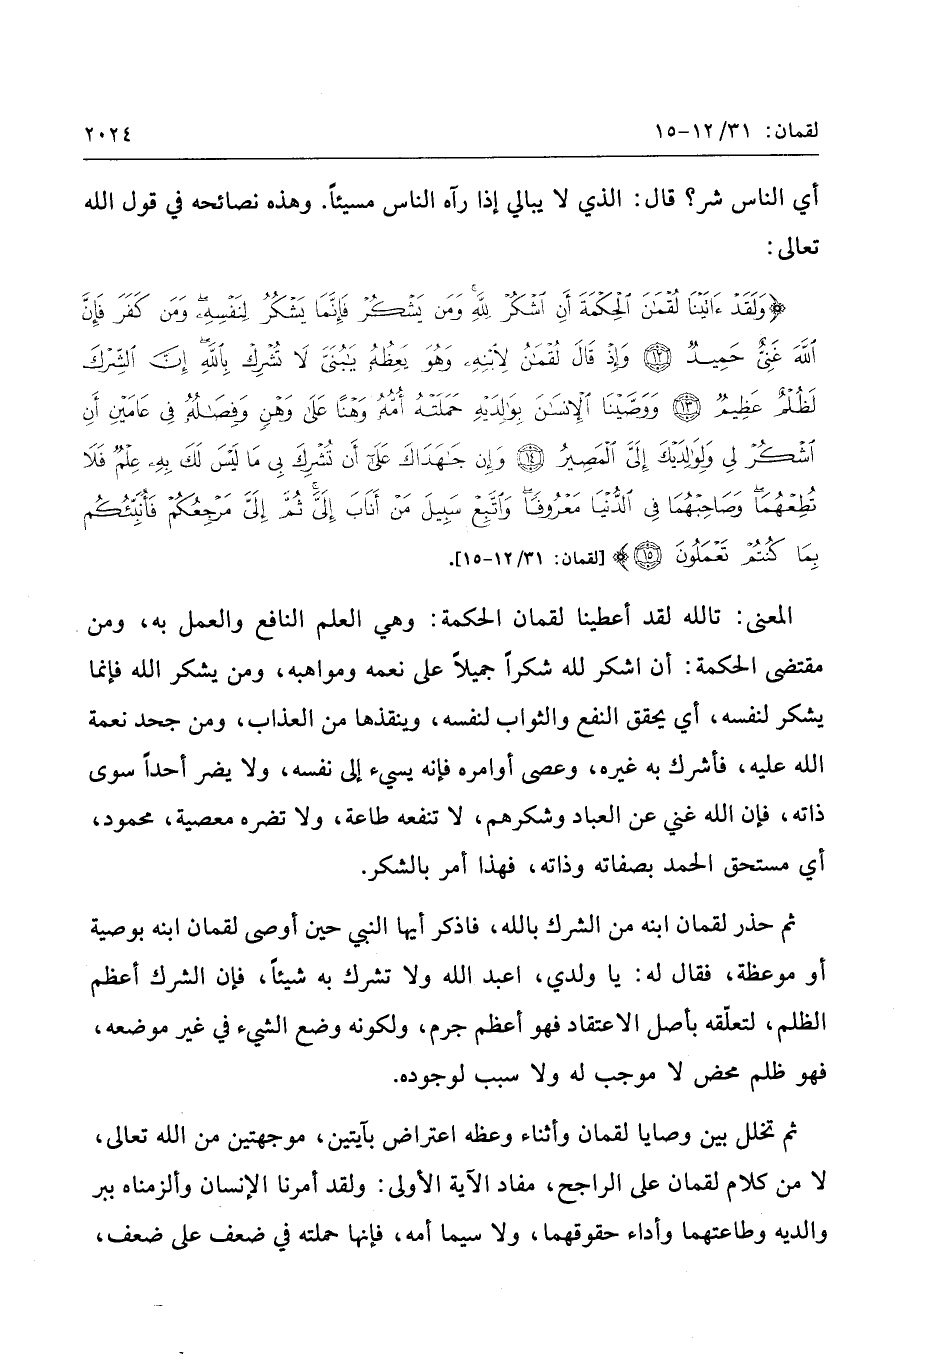 لقمان: ٣١/ ١٢-١٥ ٢٠٢٤
أي الناس شر؟ قال: الذي لا يبالي إذا رآه الناس مسيئاً. وهذه نصائحه في قول الله
تعالى:
﴿وَلَقَدْ ءَاتَيْنَا لُقْمَٰنَ ٱلْحِكْمَةَ أَنِ ٱشْكُرْ لِلَّهِ ۚ وَمَن يَشْكُرْ فَإِنَّمَا يَشْكُرُ لِنَفْسِهِۦ ۖ وَمَن كَفَرَ فَإِنَّ
ٱللَّهَ غَنِىٌّ حَمِيدٌ ۝١٢ وَإِذْ قَالَ لُقْمَٰنُ لِٱبْنِهِۦ وَهُوَ يَعِظُهُۥ يَٰبُنَىَّ لَا تُشْرِكْ بِٱللَّهِ ۖ إِنَّ ٱلشِّرْكَ
لَظُلْمٌ عَظِيمٌ ۝١٣ وَوَصَّيْنَا ٱلْإِنسَٰنَ بِوَٰلِدَيْهِ حَمَلَتْهُ أُمُّهُۥ وَهْنًا عَلَىٰ وَهْنٍ وَفِصَٰلُهُۥ فِى عَامَيْنِ أَنِ
ٱشْكُرْ لِى وَلِوَٰلِدَيْكَ إِلَىَّ ٱلْمَصِيرُ ۝١٤ وَإِن جَٰهَدَاكَ عَلَىٰٓ أَن تُشْرِكَ بِى مَا لَيْسَ لَكَ بِهِۦ عِلْمٌ فَلَا
تُطِعْهُمَا ۖ وَصَاحِبْهُمَا فِى ٱلدُّنْيَا مَعْرُوفًا ۖ وَٱتَّبِعْ سَبِيلَ مَنْ أَنَابَ إِلَىَّ ۚ ثُمَّ إِلَىَّ مَرْجِعُكُمْ فَأُنَبِّئُكُم
بِمَا كُنتُمْ تَعْمَلُونَ ۝١٥﴾ [لقمان: ٣١/ ١٢-١٥].
المعنى: تالله لقد أعطينا لقمان الحكمة: وهي العلم النافع والعمل به، ومن
مقتضى الحكمة: أن اشكر لله شكراً جميلاً على نعمه ومواهبه، ومن يشكر الله فإنما
يشكر لنفسه، أي يحقق النفع والثواب لنفسه، وينقذها من العذاب، ومن جحد نعمة
الله عليه، فأشرك به غيره، وعصى أوامره فإنه يسيء إلى نفسه، ولا يضر أحداً سوى
ذاته، فإن الله غني عن العباد وشكرهم، لا تنفعه طاعة، ولا تضره معصية، محمود،
أي مستحق الحمد بصفاته وذاته، فهذا أمر بالشكر.
ثم حذر لقمان ابنه من الشرك بالله، فاذكر أيها النبي حين أوصى لقمان ابنه بوصية
أو موعظة، فقال له: يا ولدي، اعبد الله ولا تشرك به شيئاً، فإن الشرك أعظم
الظلم، لتعلّقه بأصل الاعتقاد فهو أعظم جرم، ولكونه وضع الشيء في غير موضعه،
فهو ظلم محض لا موجب له ولا سبب لوجوده.
ثم تخلل بين وصايا لقمان وأثناء وعظه اعتراض بآيتين، موجهتين من الله تعالى،
لا من كلام لقمان على الراجح، مفاد الآية الأولى: ولقد أمرنا الإنسان وألزمناه ببر
والديه وطاعتهما وأداء حقوقهما، ولا سيما أمه، فإنها حملته في ضعف على ضعف،